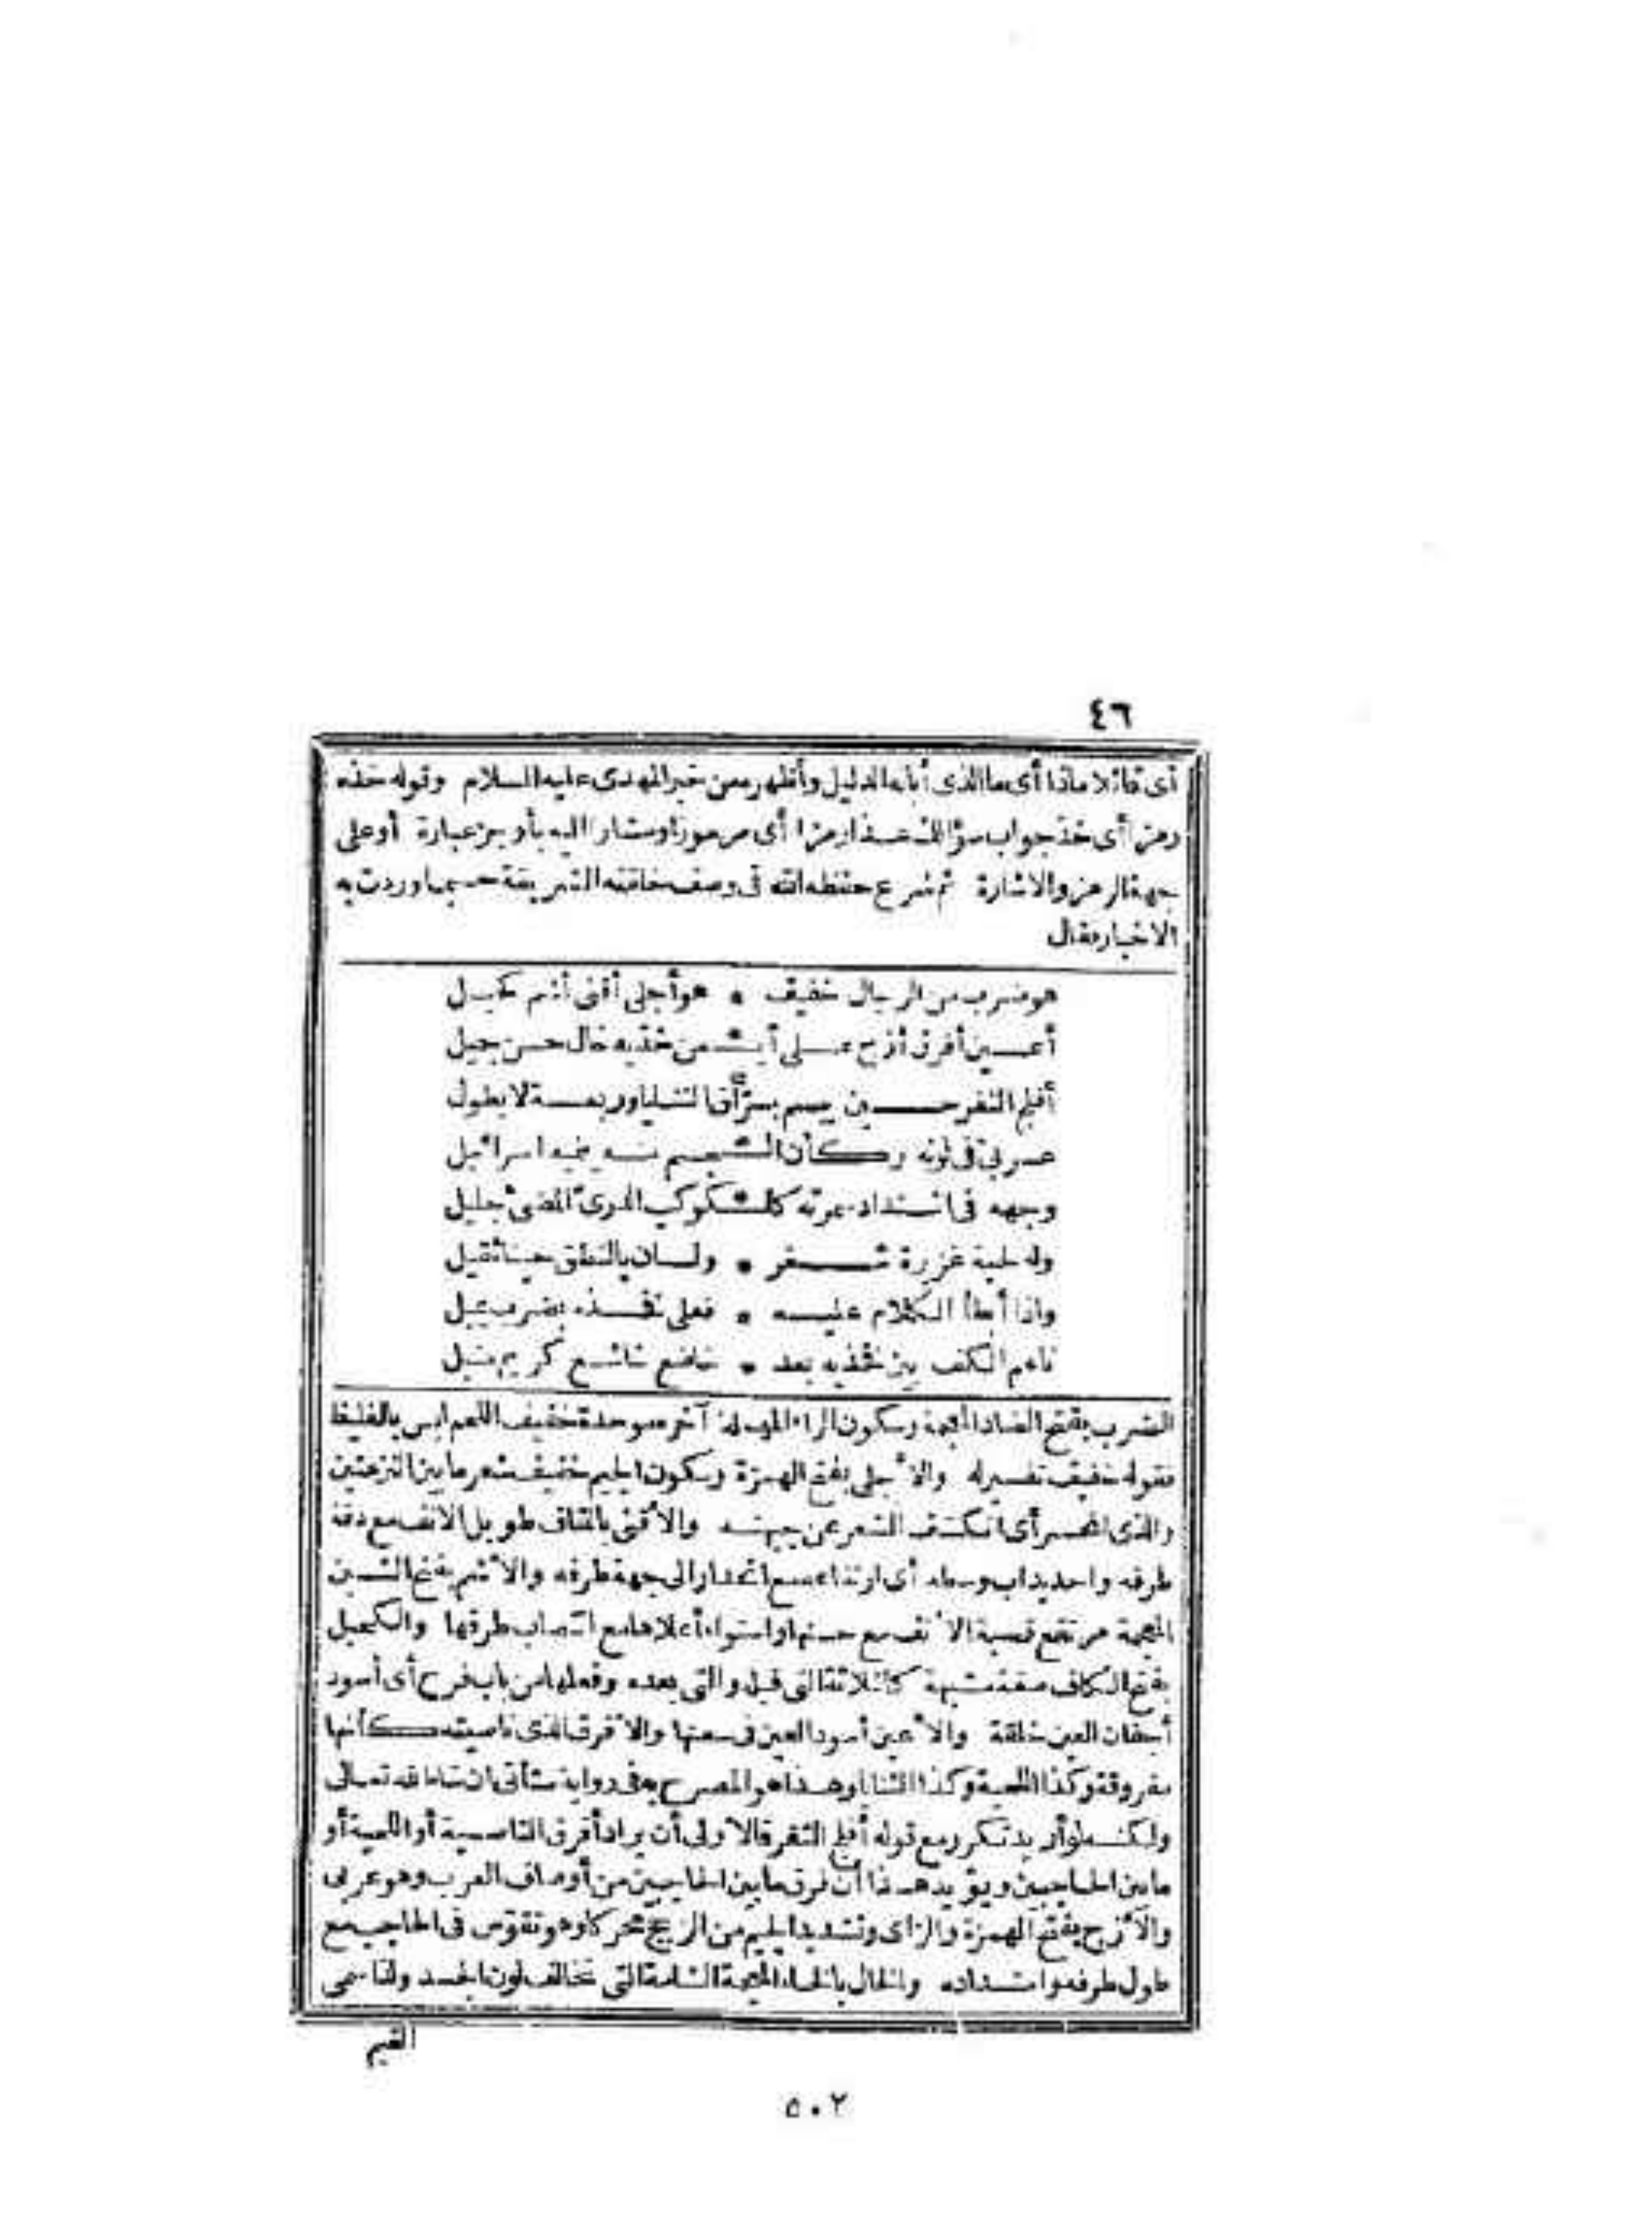 ٤٦
أى قائلا ماذا أى ما الذى أبانه الدليل وأظهره من خبر المهدى عليه السلام وقوله خذه
رمزا أى خذ جواب سؤالك هذا رمزا أى مرموزا ومشارا اليه بأوجز عبارة أو على
جهة الرمز والاشارة ثم شرع حفظه الله فى وصف خلقته الشريفة حسبما وردت به
الاخبار فقال
هو ضرب من الرجال خفيف * هو أجلى أقنى أشم كحيل
أعين أفرق أزج على أيمن خذيه خال حسن جميل
أفلج الثغر حين يبسم براق الثنايا وربعة لا يطول
عربي فى لونه وكأن الجسم منه ينميه اسرائيل
وجهه فى اشتداد سمرته كالكوكب الدرى المضىء جليل
وله لحية غزيرة شعر * ولسان بالنطق حينا ثقيل
واذا أبطأ الكلام عليه * فعلى فخذه بضرب يميل
ناعم الكف بين فخذيه بعد * خاضع خاشع كريم منيل
الضرب بفتح الضاد المعجمة وسكون الراء المهملة آخره موحدة خفيف اللحم ليس بالغليظ
فقوله خفيف تفسير له والأجلى بفتح الهمزة وسكون الجيم خفيف شعر ما بين النزعتين
والذى انحسر أى انكشف الشعر عن جبهته والأقنى بالقاف طويل الانف مع دقة
طرفه واحديداب وسطه أى ارتفاعه مع انحدار الى جهة طرفه والأشم بفتح الشين
المعجمة مرتفع قصبة الأنف مع حسنها واستواء أعلاها مع انتصاب طرفها والكحيل
بفتح الكاف صفة مشبهة كالثلاثة التى قبل والتى بعده وفعلها من باب فرح أى أسود
أجفان العين خلقة والأعين أسود العين فى سعتها والأفرق الذى ناصيته كأنها
مفروقة وكذا اللحية وكذا الثنايا وهذا هو المصرح به فى رواية ستأتى ان شاء الله تعالى
ولكنه لو أريد تكرر مع قوله أفلج الثغر فالاولى أن يراد أفرق الناصية أو اللحية أو
ما بين الحاجبين ويؤيد هذا أن فرق ما بين الحاجبين من أوصاف العرب وهو عربى
والأزج بفتح الهمزة والزاى وتشديد الجيم من الزجج محركا وهو تقوس فى الحاجب مع
طول طرفه وامتداده والخال بالخاء المعجمة الشامة التى تخالف لون الجسد ولذا سمى
الغيم
٥٠٢